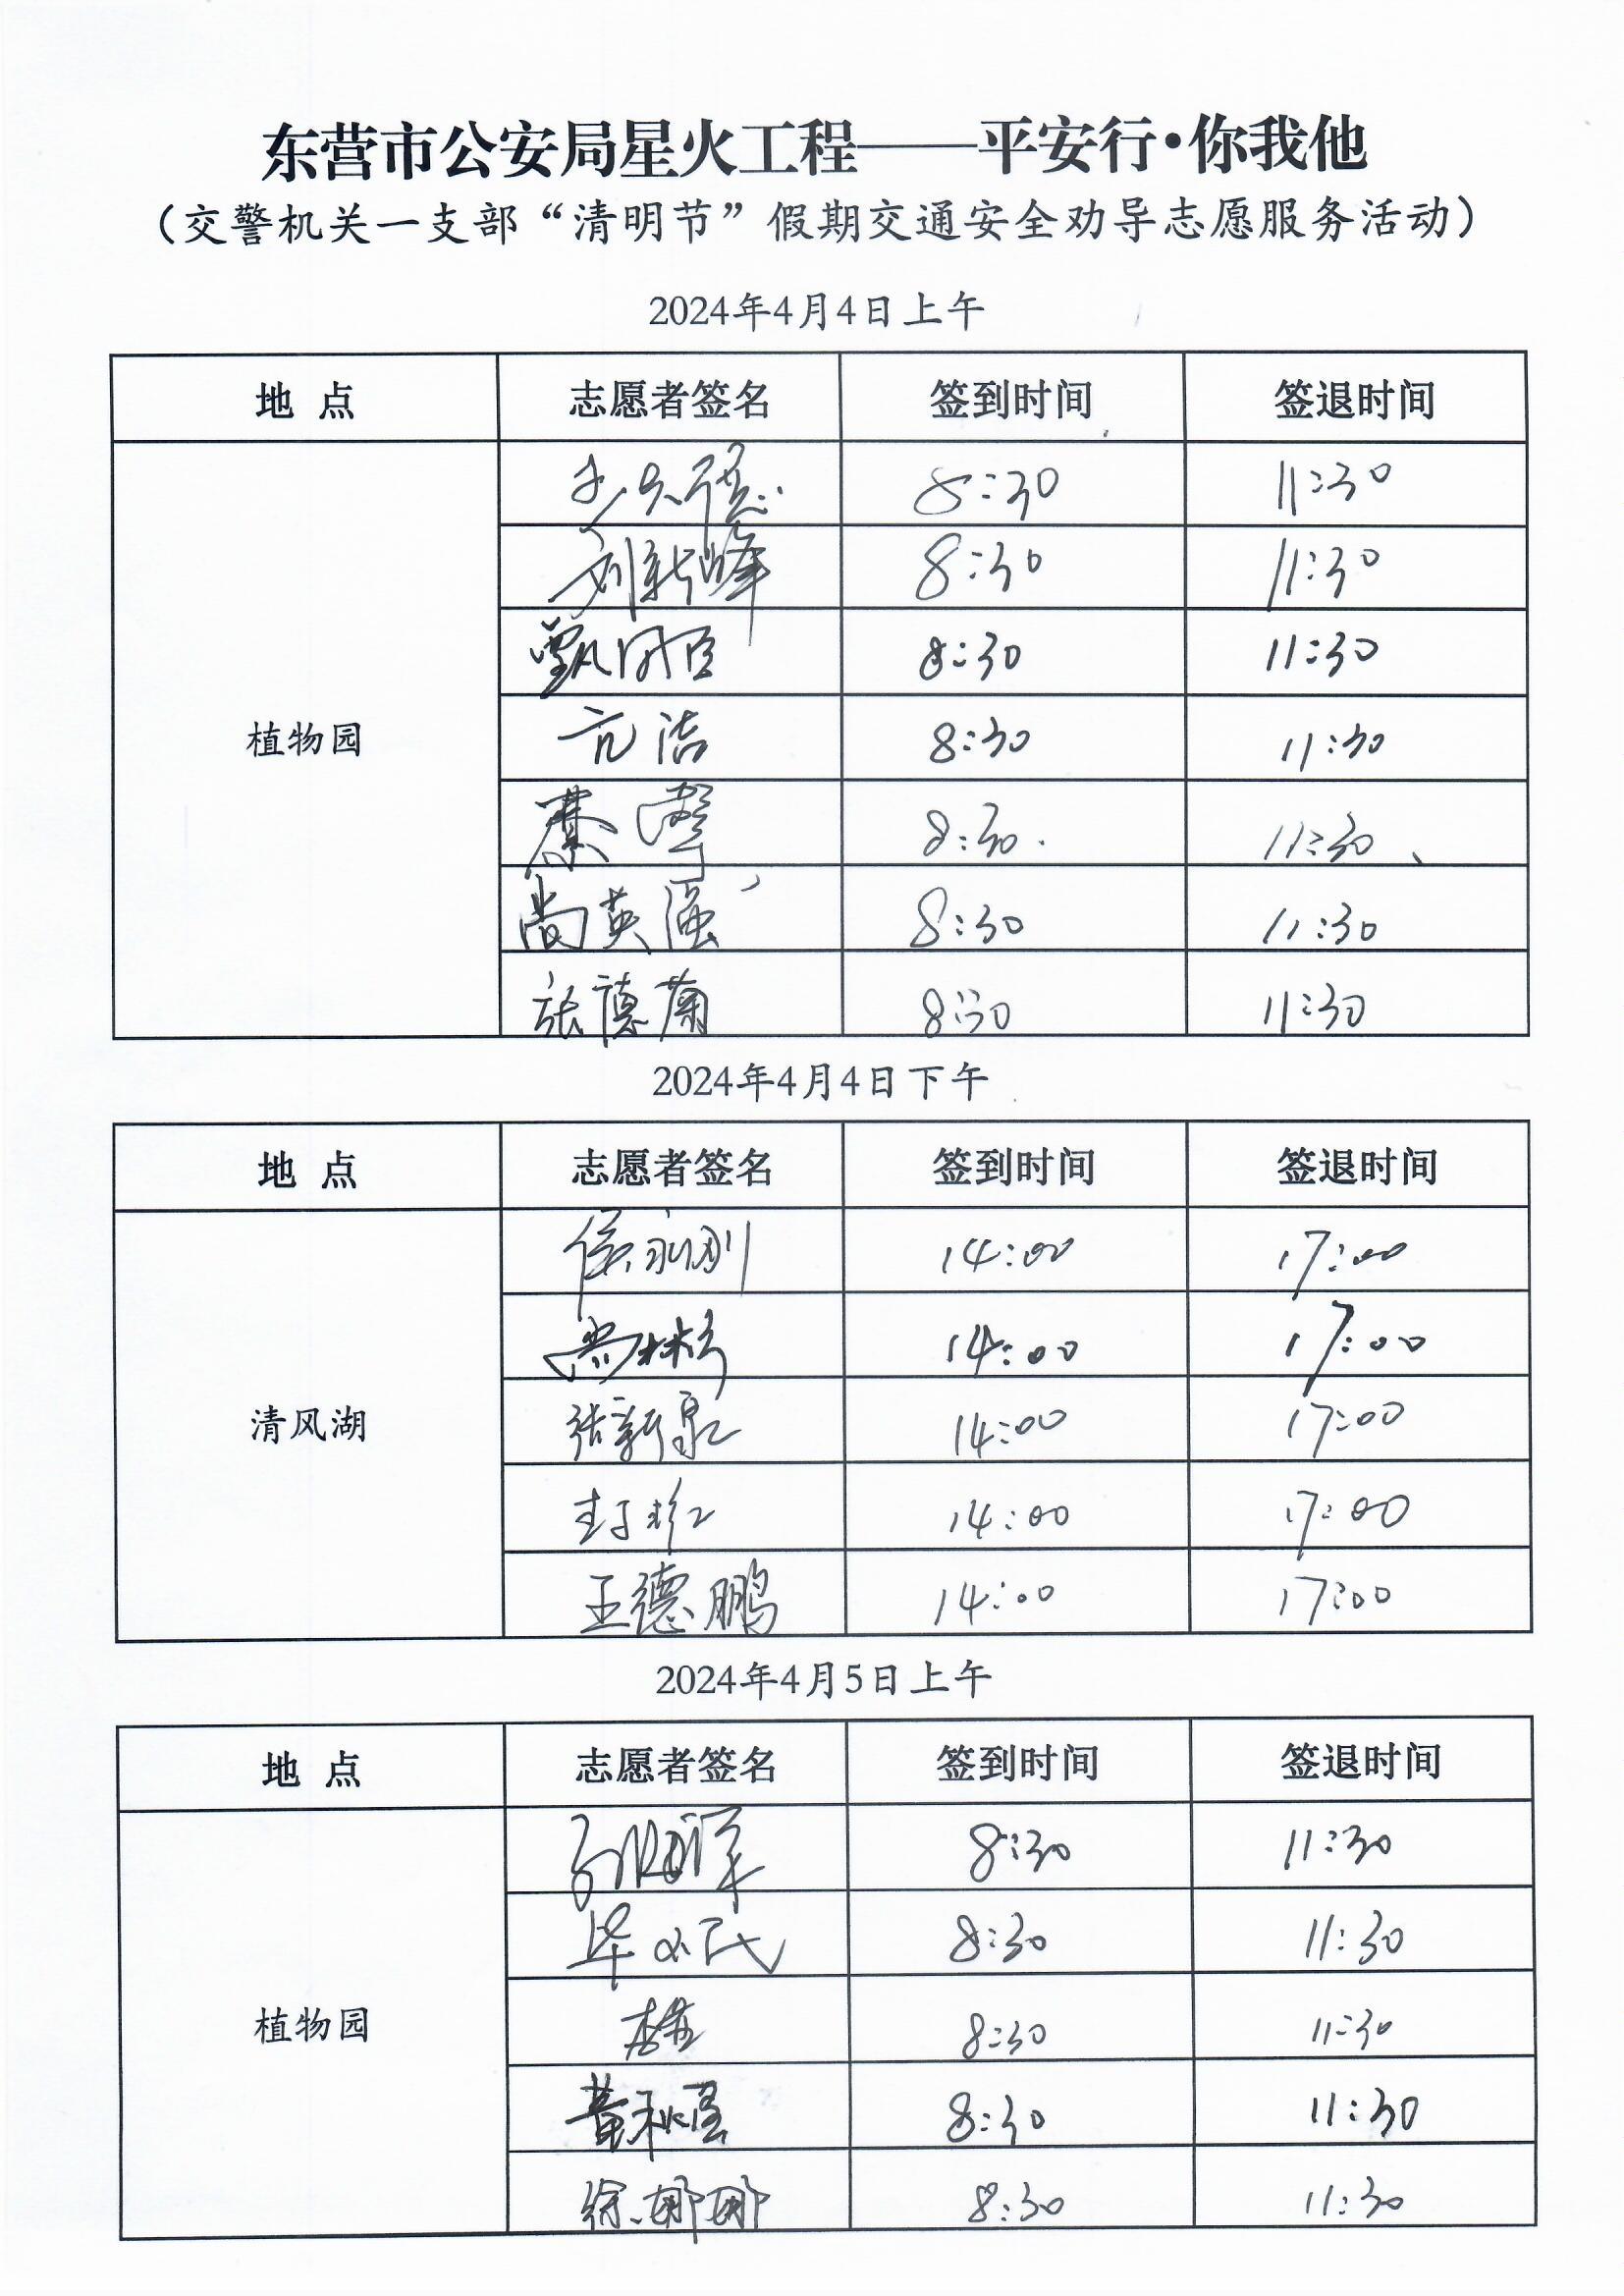 东营市公安局星火工程——平安行·你我他
（交警机关一支部“清明节”假期交通安全劝导志愿服务活动）
2024年4月4日上午
地 点 志愿者签名 签到时间 签退时间
8:30 11:30
刘新峰 8:30 11:30
8:30 11:30
植物园 亓洁 8:30 11:30
8:30. 11:30、
尚英强 8:30 11:30
张德菊 8:30 11:30
2024年4月4日下午
地 点 志愿者签名 签到时间 签退时间
侯永刚 14:00 17:00
14:00 17:00
清风湖 张新泉 14:00 17:00
14:00 17:00
王德鹏 14:00 17:00
2024年4月5日上午
地 点 志愿者签名 签到时间 签退时间
8:30 11:30
8:30 11:30
植物园 8:30 11:30
8:30 11:30
徐娜娜 8:30 11:30